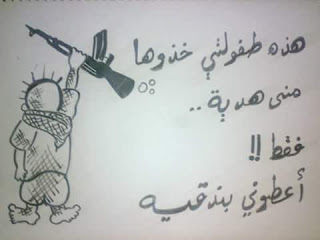 هذه طفولتي خذوها
مني هدية ..
فقط !!
أعطوني بندقيه